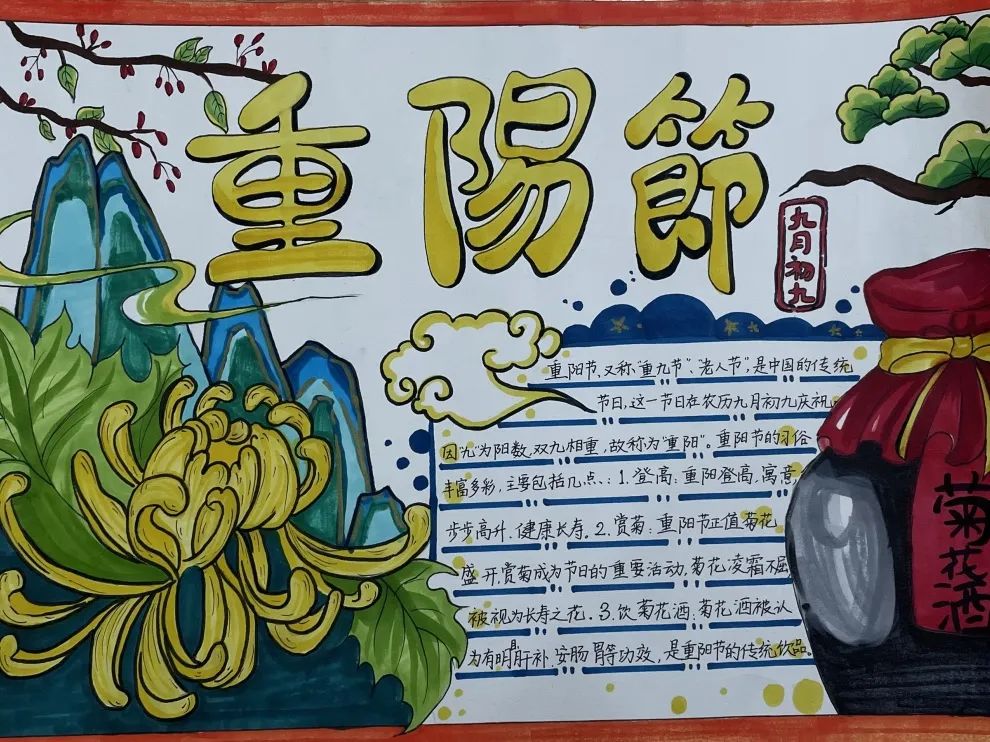 重陽節
九月初九
重阳节,又称“重九节”、“老人节”,是中国的传统
节日,这一节日在农历九月初九庆祝,
因“九”为阳数,双九相重,故称为“重阳”。重阳节的习俗
丰富多彩,主要包括几点、:1.登高:重阳登高,寓意
步步高升、健康长寿。2.赏菊:重阳节正值菊花
盛开,赏菊成为节日的重要活动,菊花凌霜不屈
被视为长寿之花。3.饮菊花酒:菊花酒被认
为有明肝补、安肠胃等功效,是重阳节的传统饮品
菊花酒